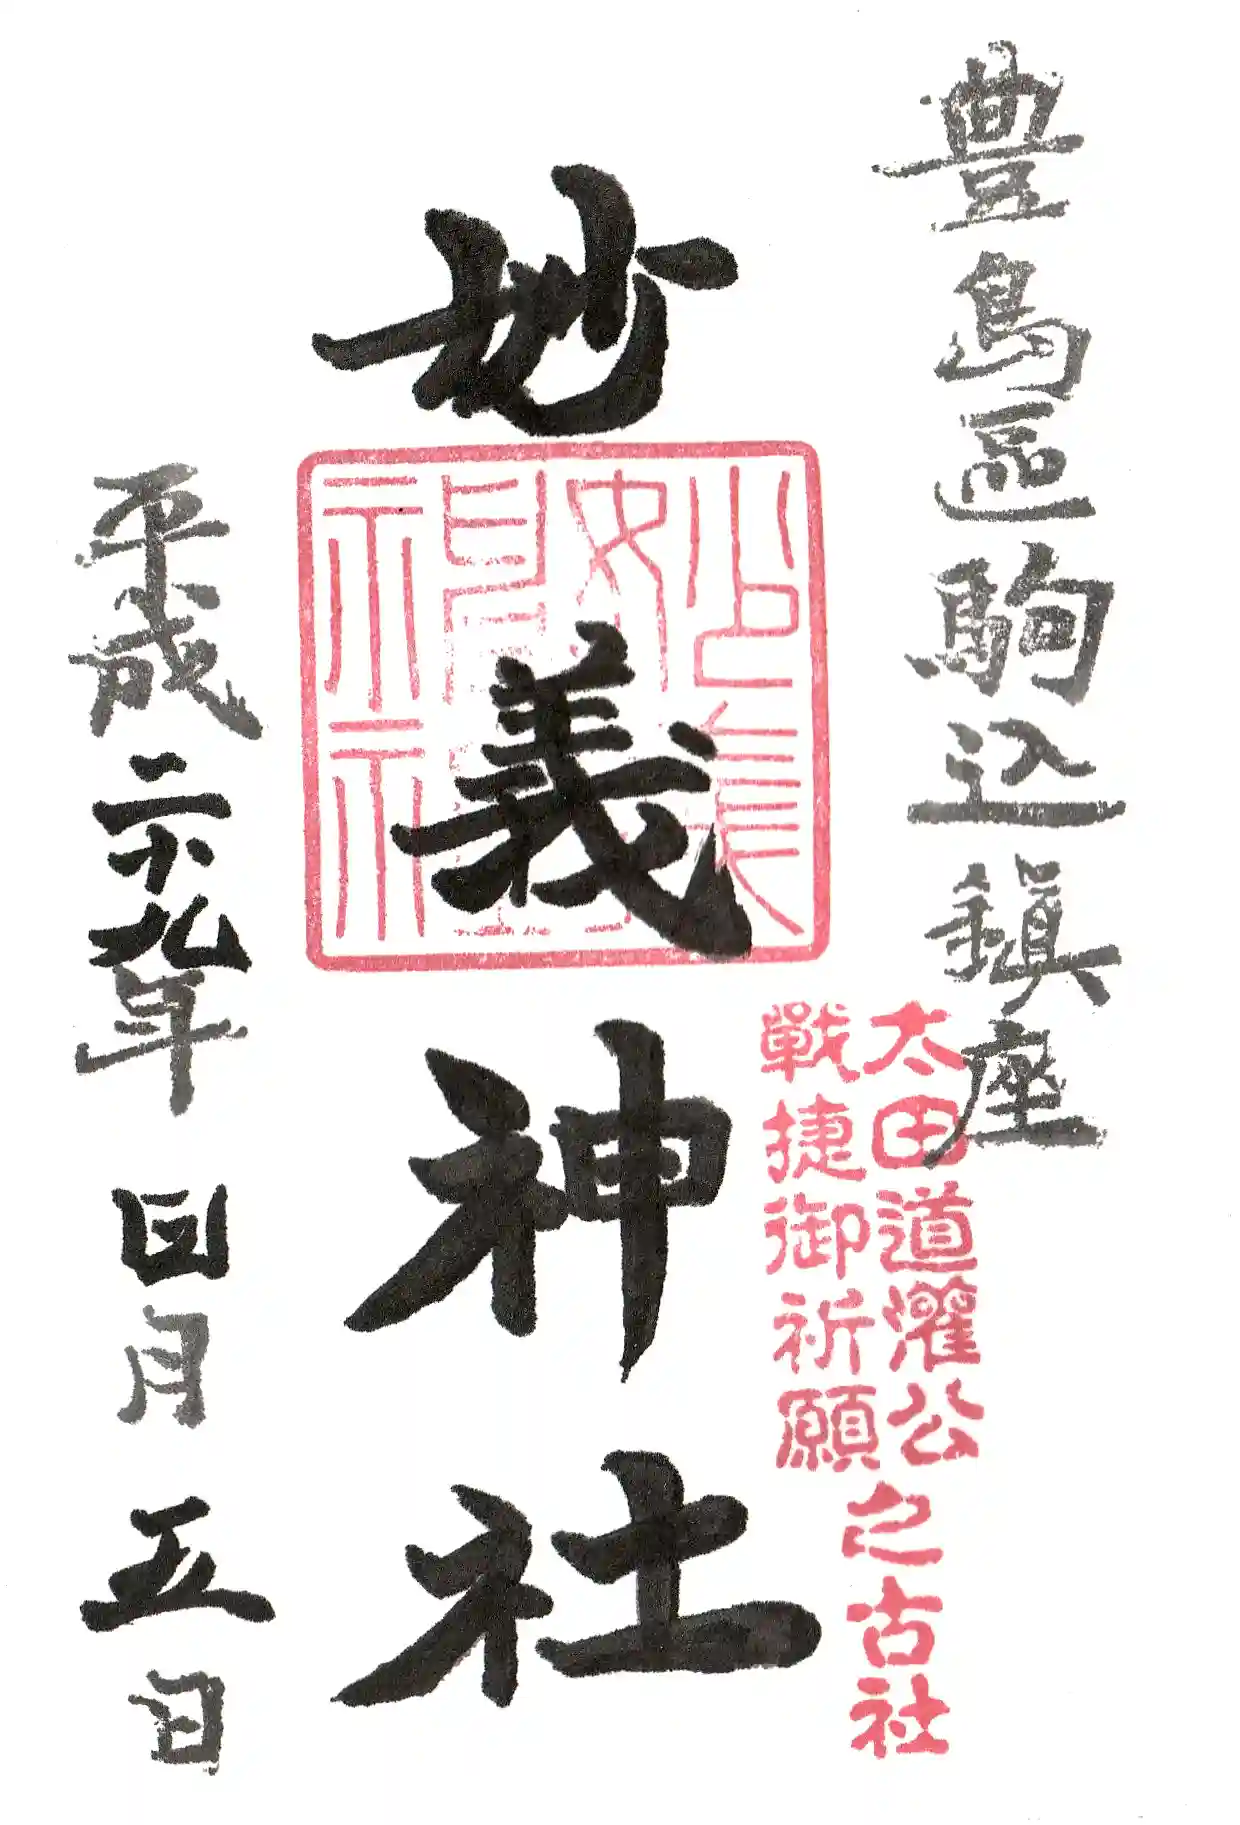 豊島區駒込鎮座
太田道灌公
戰捷御祈願
之古社
妙義神社
平成二十九年四月五日